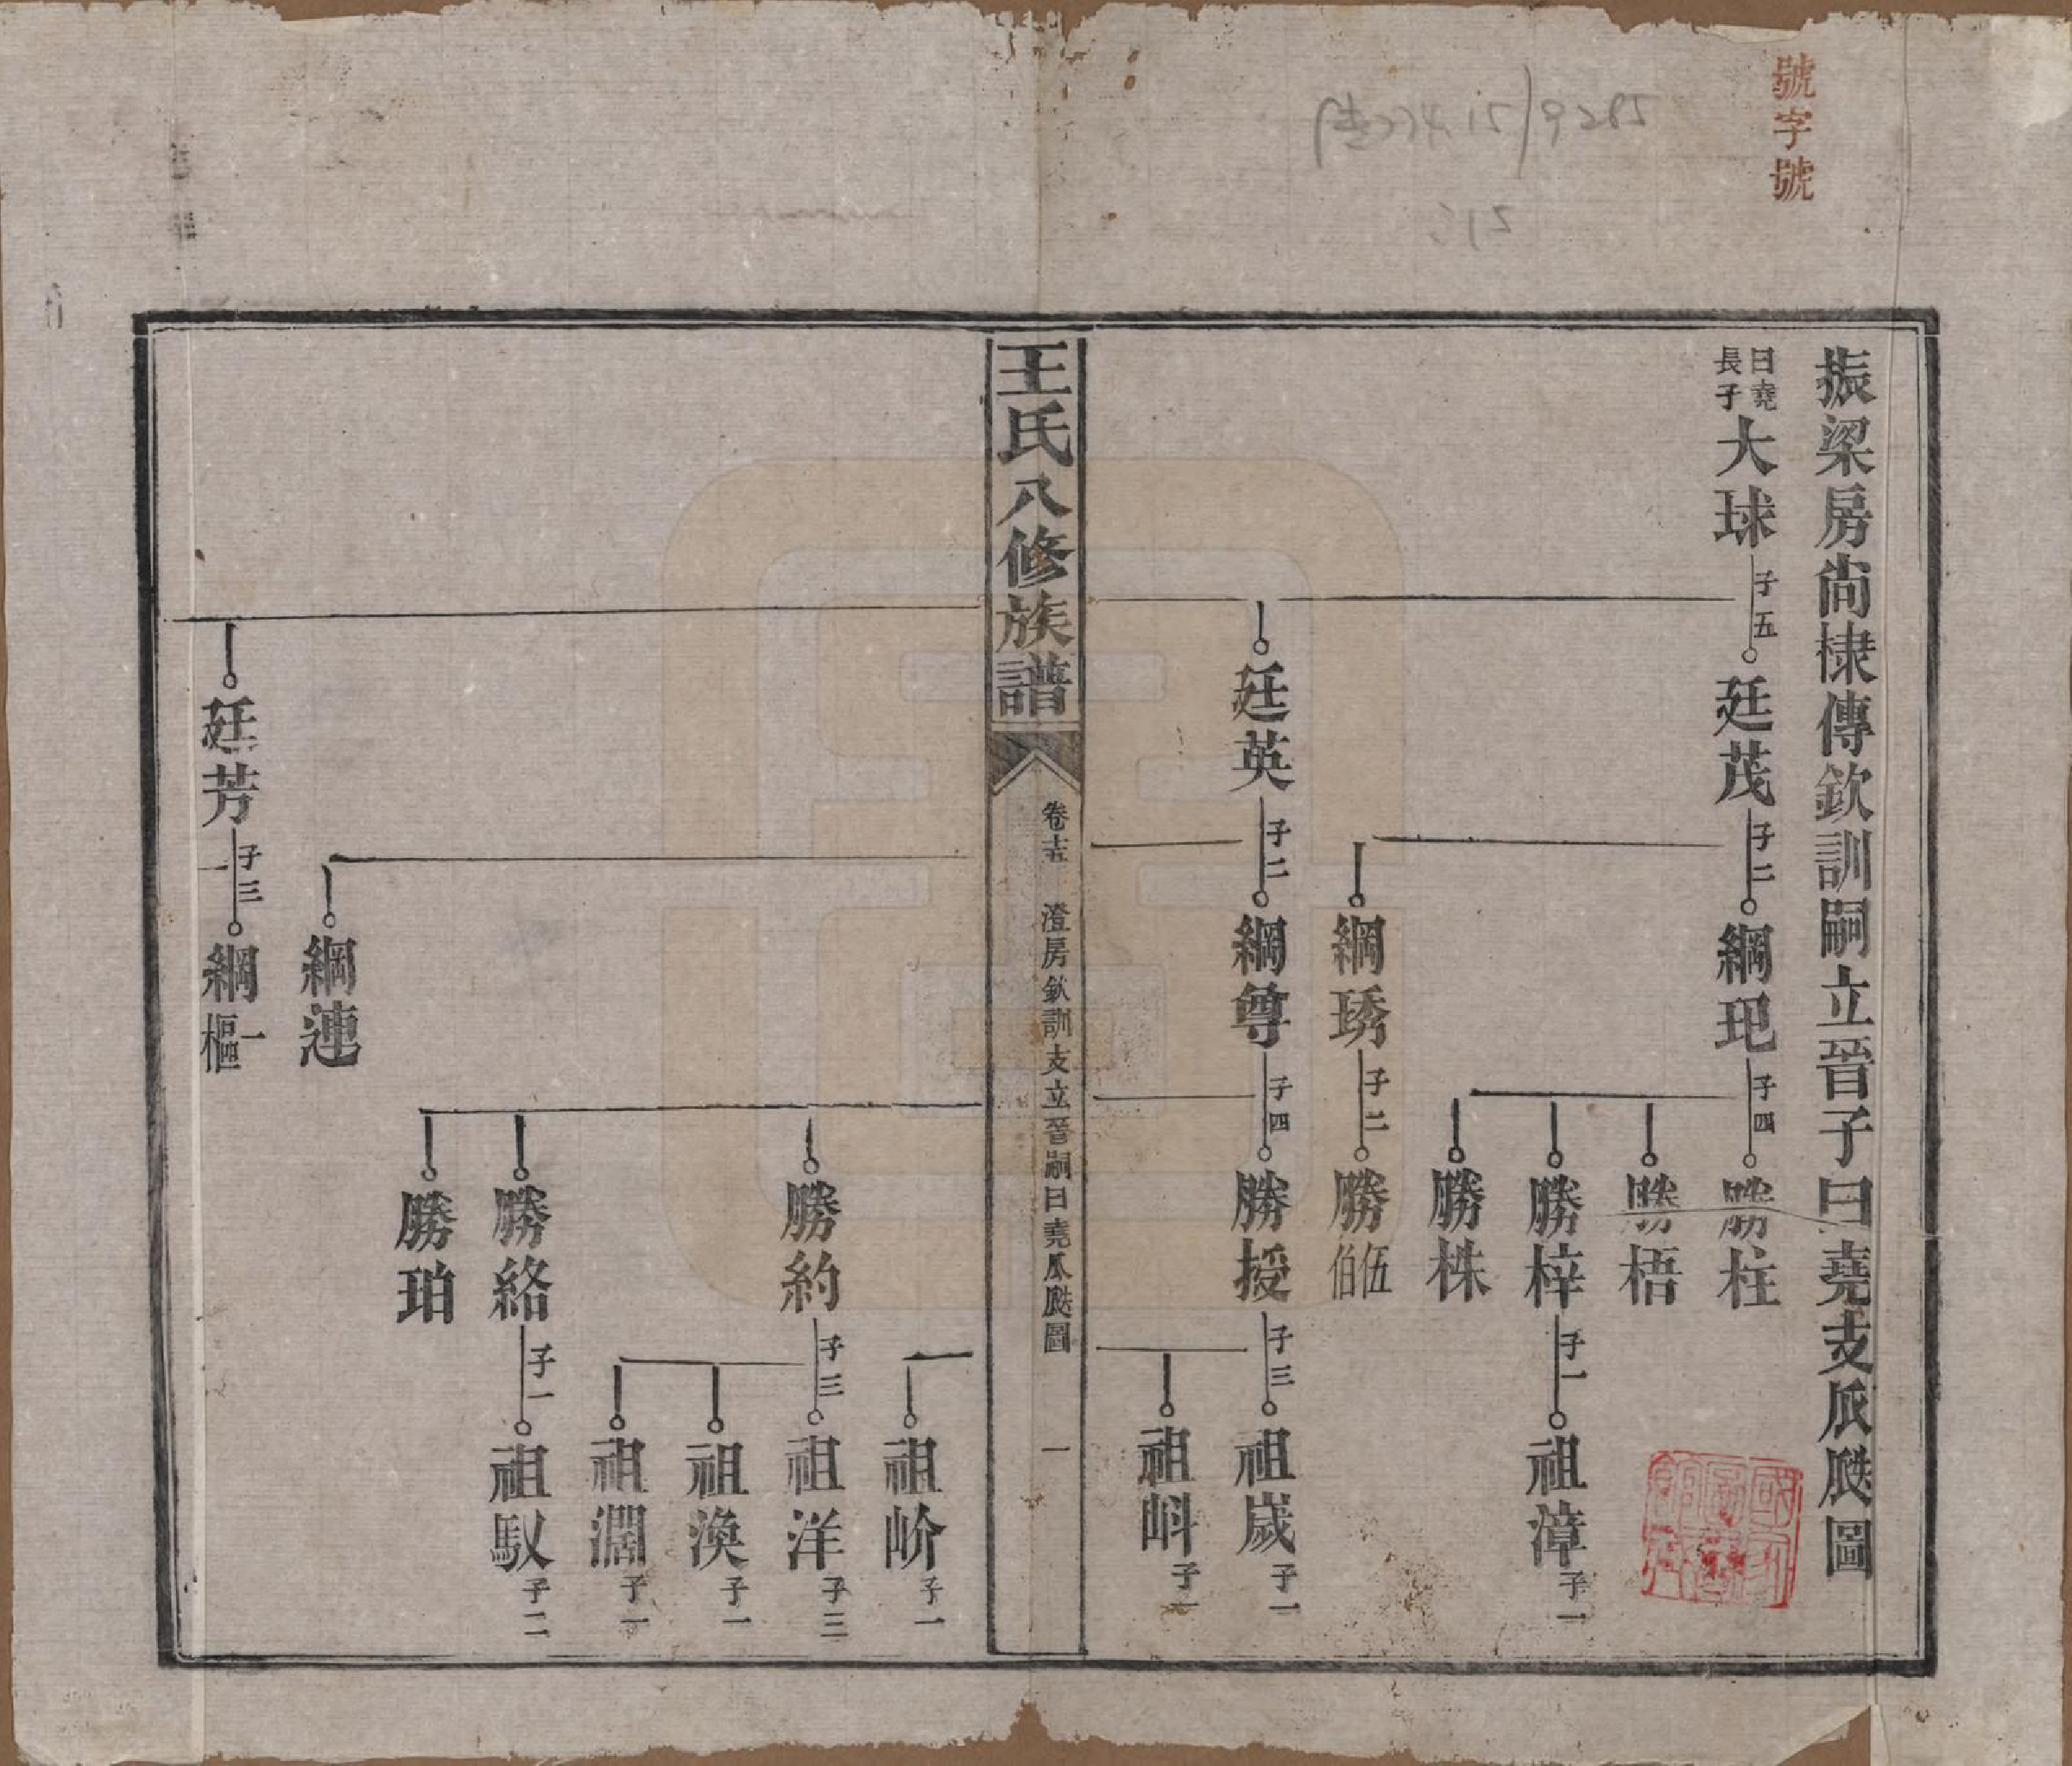 號字號
振梁房尚棣傳欽訓嗣立晉子曰堯支瓜瓞圖
曰堯
長子
大球 子五
廷茂 子二
綱玘 子四
勝柱
勝梧
勝梓 子一
祖漳 子一
勝株
綱琇 子二
勝伍
伯
廷英 子二
綱尊 子四
勝授 子三
祖嵗 子一
祖㟁 子一
王氏八修族譜
卷十五 澄房欽訓支立晉嗣曰堯瓜瓞圖 一
祖岕 子一
勝約 子三
祖洋 子三
祖渙 子一
祖濶 子一
勝絡 子一
祖馭 子二
勝珀
綱連
廷芳 子三
綱樞 一